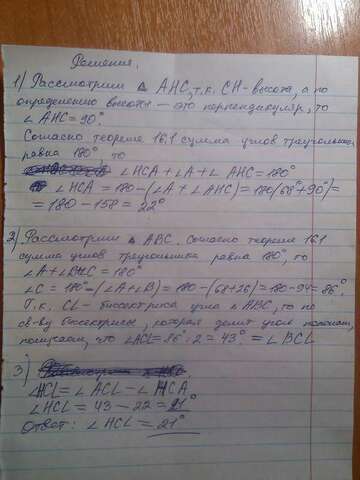 Решение.
1) Рассмотрим △ AHC, т.к. CH - высота, а по
определению высоты — это перпендикуляр, то
∠ AHC = 90°.
Согласно теореме 16.1 сумма углов треугольника
равна 180°, то
∠ HCA + ∠A + ∠ AHC = 180°
∠ HCA = 180 - (∠A + ∠AHC) = 180(68°+90°)=
= 180 - 158 = 22°
2) Рассмотрим △ ABC. Согласно теореме 16.1
сумма углов треугольника равна 180°, то
∠A + ∠B + ∠C = 180°
∠C = 180° - (∠A + ∠B) = 180 - (68+26) = 180 - 94 = 86°.
Т.к. CL - биссектриса угла ∠ ABC, то по
св-ву биссектрисы, которая делит угол пополам,
получаем, что ∠ACL = 86°: 2 = 43°. = ∠ BCL
3)
∠HCL = ∠ ACL - ∠ HCA
∠ HCL = 43 - 22 = 21°
Ответ: ∠ HCL = 21°